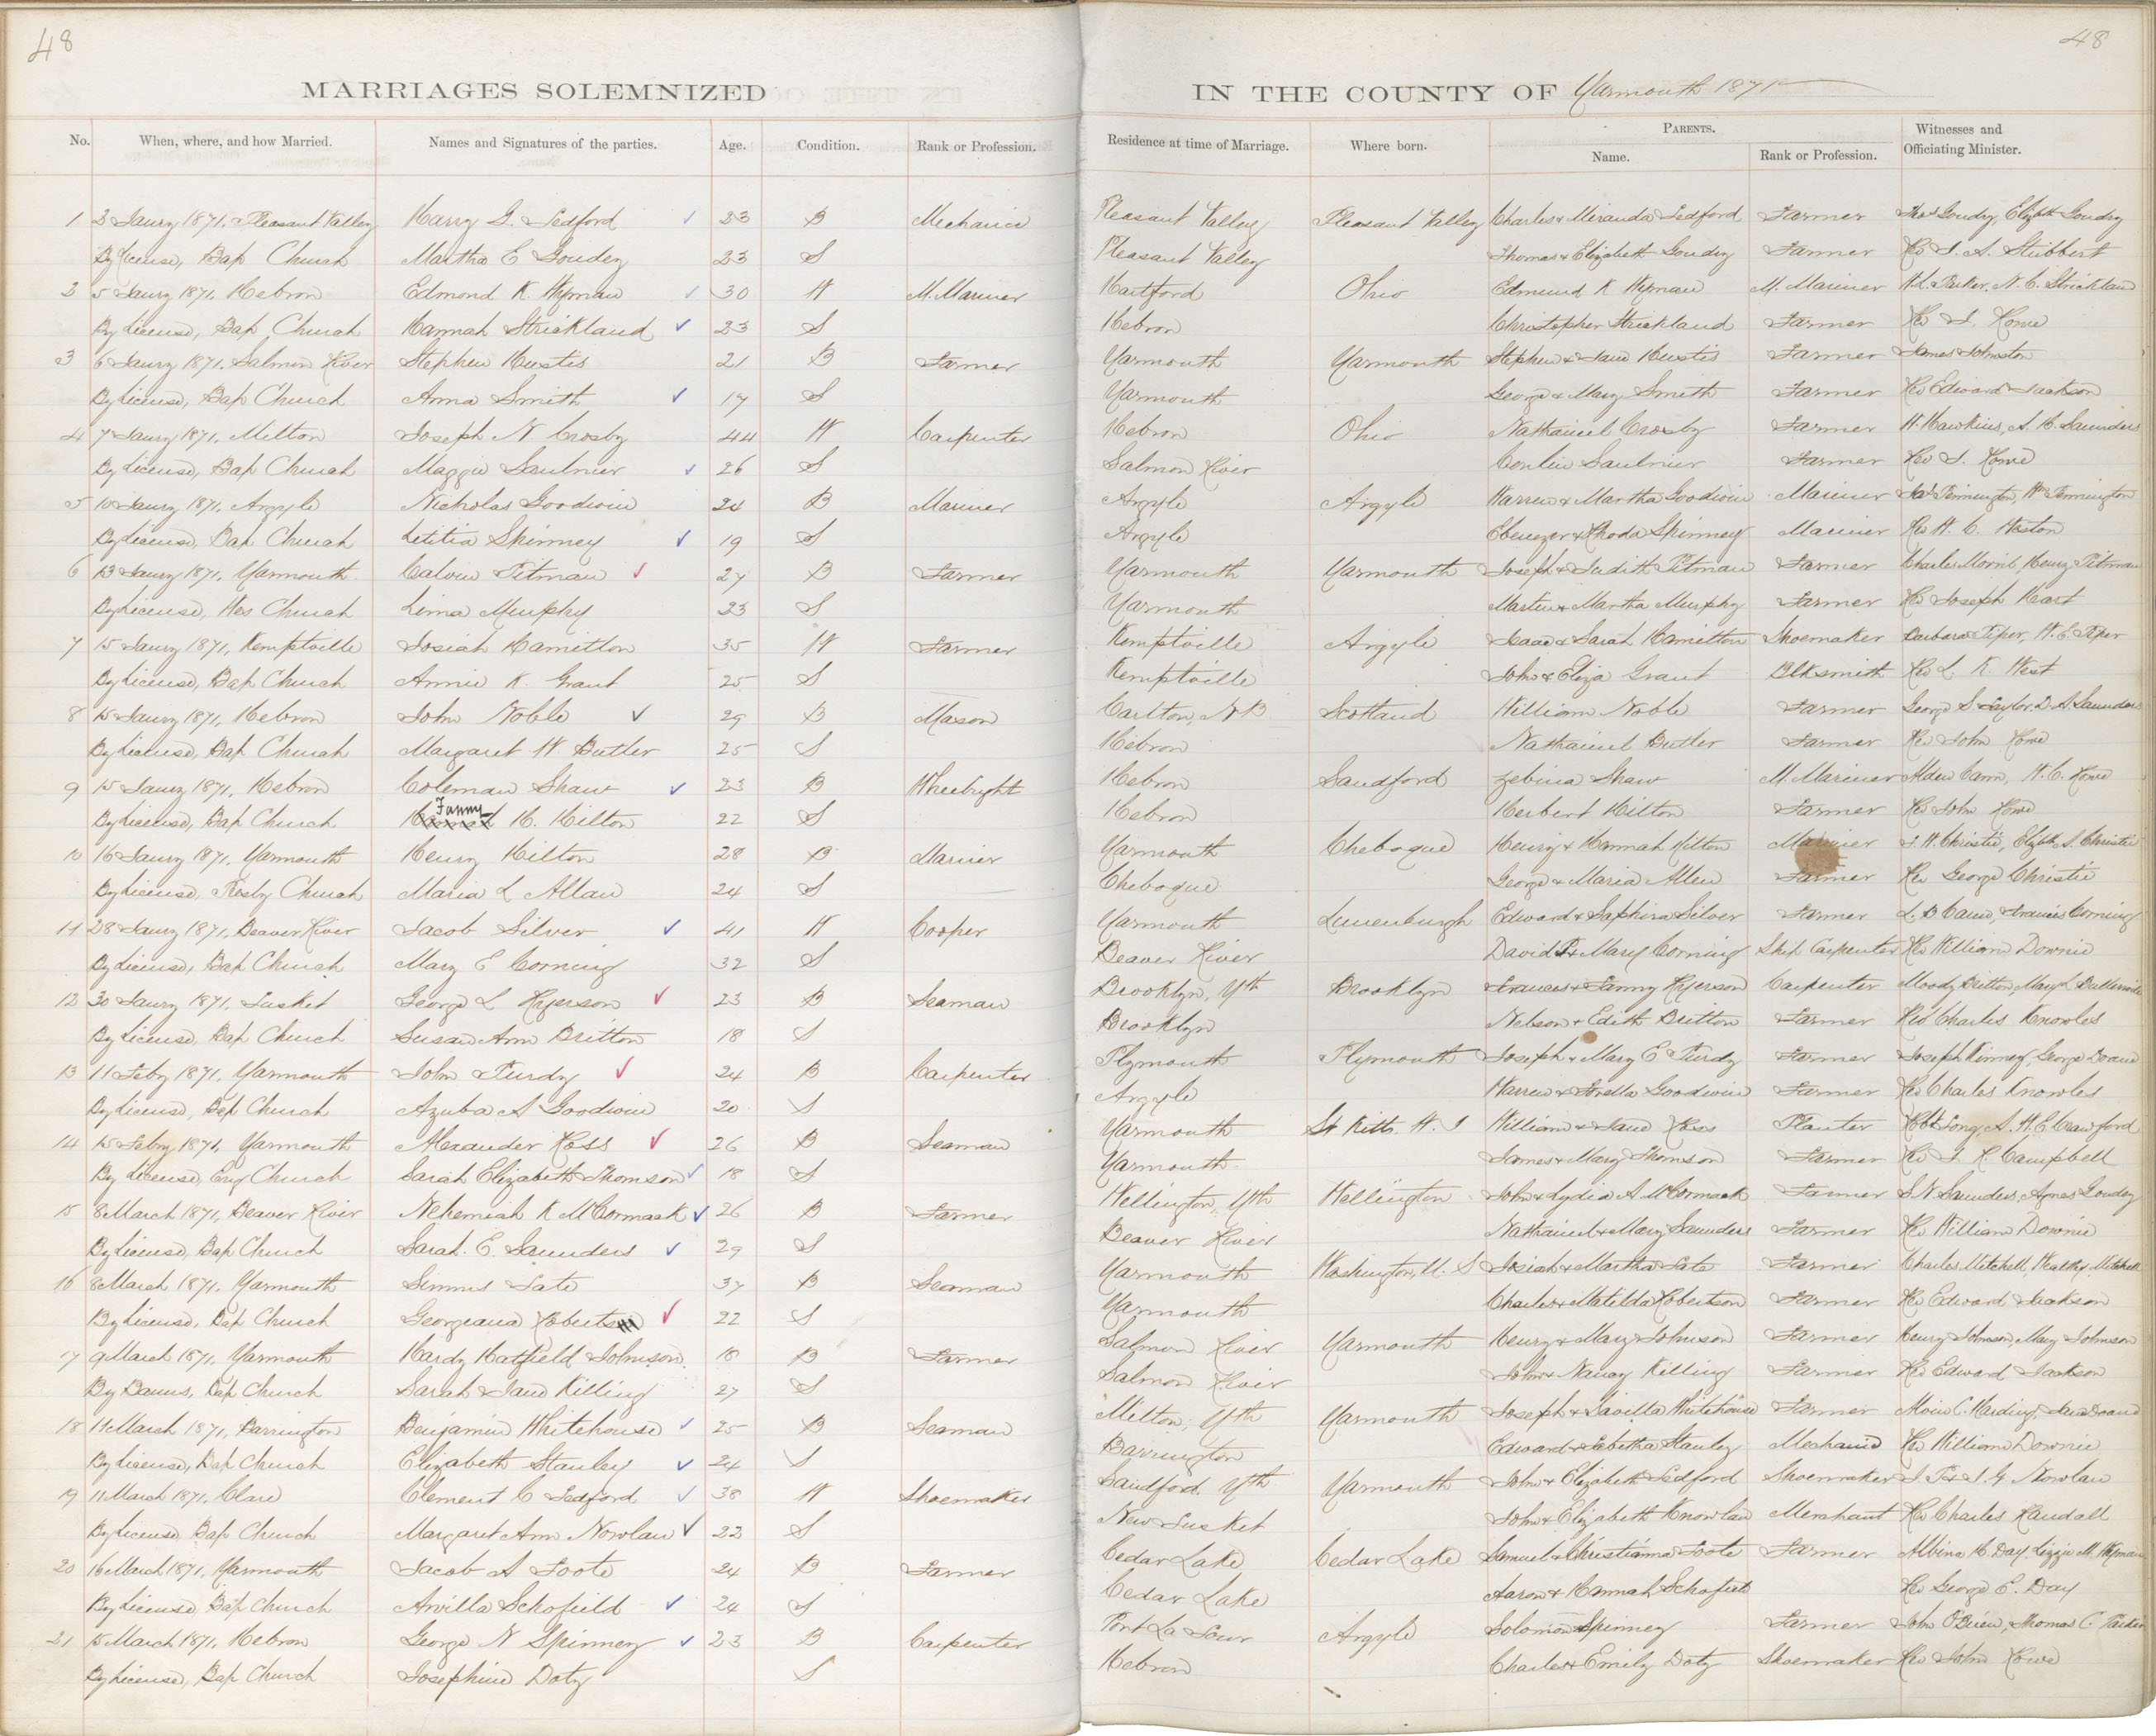 48
48
MARRIAGES SOLEMNIZED IN THE COUNTY OF Yarmouth 1871
No. When, where, and how Married. Names and Signatures of the parties. Age. Condition. Rank or Profession. Residence at time of Marriage. Where born. PARENTS. Name. Rank or Profession. Witnesses and Officiating Minister.
1 2 Jaury 1871, Pleasant Valley Harry G. Sedford 23 B Mechanic Pleasant Valley Pleasant Valley Charles & Miranda Sedford Farmer Thos Goudey, Elizbth Goudey
By License, Bap Church Martha E Goudey 23 S Pleasant Valley Thomas & Elizabeth Goudey Farmer Rev J. A. Stubbert
2 5 Jaury 1871, Hebron Edmond K. Wyman 30 W M. Mariner Hartford Ohio Edmund K Wyman M. Mariner N. C. Strickland
By License, Bap Church Hannah Strickland 23 S Hebron Christopher Strickland Farmer Rev J. Rowe
3 6 Jaury 1871, Salmon River Stephen Hustis 21 B Farmer Yarmouth Yarmouth Stephen & Jane Hustis Farmer James Johnston
By License, Bap Church Anna Smith 17 S Yarmouth George & Mary Smith Farmer Rev Edward Jackson
4 7 Jaury 1871, Milton Joseph N Crosby 44 W Carpenter Hebron Ohio Nathaniel Crosby Farmer H. Hawkins, A. H. Saunders
By License, Bap Church Maggie Saulnier 26 S Salmon River Saulnier Farmer Rev J. Rowe
5 10 Jaury 1871, Argyle Nicholas Goodwin 24 B Mariner Argyle Argyle Warren & Martha Goodwin Mariner Jas Pennington, Wm Pennington
By License, Bap Church Letitia Spinney 19 S Argyle Ebenezer & Rhoda Spinney Mariner Rev W. C. Weston
6 13 Jaury 1871, Yarmouth Calvin Pitman 27 B Farmer Yarmouth Yarmouth Joseph & Judith Pitman Farmer Charles Morris, Henry Pitman
By License, Wes Church Lima Murphy 23 S Yarmouth Martin & Martha Murphy Farmer Rev Joseph Hart
7 15 Jaury 1871, Kemptville Josiah Hamilton 35 W Farmer Kemptville Argyle Isaac & Sarah Hamilton Shoemaker Barbara Piper, W. E. Piper
By License, Bap Church Annie K. Grant 25 S Kemptville John & Eliza Grant Blksmith Rev L. K. West
8 15 Jaury 1871, Hebron John Noble 29 B Mason Carlton, N B Scotland William Noble Farmer George S Taylor, D. A. Saunders
By License, Bap Church Margaret W Butler 25 S Hebron Nathaniel Butler Farmer Rev John Rowe
9 15 Jaury 1871, Hebron Coleman Shaw 23 B Wheelright Hebron Sandford Zebina Shaw M. Mariner Alden Cann, W. C. Rowe
By License, Bap Church Fanny H. Hilton 22 S Hebron Herbert Hilton Farmer Rev John Rowe
10 16 Jaury 1871, Yarmouth Henry Hilton 28 B Mariner Yarmouth Chebogue Henry & Hannah Hilton Mariner J. W. Christie, Elizbth S. Christie
By License, Presby Church Maria L Allan 24 S Chebogue George & Maria Allen Farmer Rev George Christie
11 28 Jaury 1871, Beaver River Jacob Silver 41 W Cooper Yarmouth Lunenburgh Edward & Saphira Silver Farmer L. B Cann, Francis Corning
By License, Bap Church Mary E Corning 32 S Beaver River David & Mary Corning Ship Carpenter Rev William Downie
12 30 Jaury 1871, Tusket George L Ryerson 23 B Seaman Brooklyn, Yth Brooklyn Francis & Fanny Ryerson Carpenter Moody Britton, Mary L
By License, Bap Church Susan Ann Britton 18 S Brooklyn Nelson & Edith Britton Farmer Rev Charles Knowles
13 11 Feby 1871, Yarmouth John Purdy 24 B Carpenter Plymouth Plymouth Joseph & Mary E Purdy Farmer Joseph Kinney, George Doane
By License, Bap Church Azuba A Goodwin 20 S Argyle Warren & Lorella Goodwin Farmer Rev Charles Knowles
14 15 Febry 1871, Yarmouth Alexander Ross 26 B Seaman Yarmouth St Kitts. W. I William & Jane Ross Planter Robt Long, A. W. E Crawford
By License, Eng Church Sarah Elizabeth Thomson 18 S Yarmouth James & Mary Thomson Farmer Rev J. R. Campbell
15 8 March 1871, Beaver River Nehemiah K McCormack 26 B Farmer Wellington, Yth Wellington John & Lydia A. McCormack Farmer S. N. Saunders, Agnes Goudey
By License, Bap Church Sarah. E. Saunders 29 S Beaver River Nathaniel & Mary Saunders Farmer Rev William Downie
16 8 March 1871, Yarmouth Simms Tate 37 B Seaman Yarmouth Washington, U. S Josiah & Martha Tate Farmer Charles Mitchell, Mitchell
By License, Bap Church Georgeana Robertson 22 S Yarmouth Charles & Matilda Robertson Farmer Rev Edward Jackson
17 9 March 1871, Yarmouth Hardy Hatfield Johnson 18 B Farmer Salmon River Yarmouth Henry & Mary Johnson Farmer Henry Johnson, Mary Johnson
By Banns, Bap Church Sarah Jane Killing 27 S Salmon River John & Nancy Killing Farmer Rev Edward Jackson
18 11 March 1871, Barrington Benjamin Whitehouse 25 B Seaman Milton, Yth Yarmouth Joseph & Savilla Whitehouse Farmer Alvin C. Harding, Jane Doane
By License, Bap Church Elizabeth Stanley 24 S Barrington Edward & Tabitha Stanley Mechanic Rev William Downie
19 11 March 1871, Clare Clement C Sedford 38 W Shoemaker Sandford Yth Yarmouth John & Elizabeth Sedford Shoemaker J. P & J. G Nowlan
By License Bap Church Margaret Ann Nowlan 22 S New Tusket John & Elizabeth Knowlan Merchant Rev Charles Randall
20 16 March 1871, Yarmouth Jacob A Foote 24 B Farmer Cedar Lake Cedar Lake Samuel & Christianna Foote Farmer Albina H Day, Lizzie M. Wyman
By License Bap Church Arvilla Schofield 24 S Cedar Lake Aaron & Hannah Schofield Rev George E. Day
21 15 March 1871, Hebron George N Spinney 23 B Carpenter Port La Tour Argyle Solomon Spinney Farmer John O'Brien, Thomas C.
By License, Bap Church Josephine Doty S Hebron Charles & Emily Doty Shoemaker Rev John Rowe